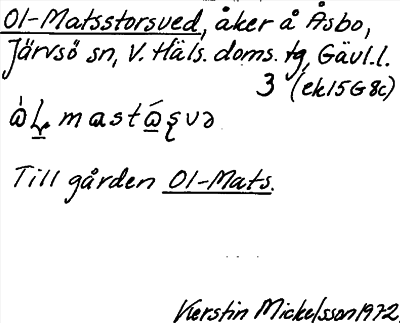 Ol-Matsstorsved, åker å Åsbo,
Järvsö sn, V. Häls. doms. tg, Gävl.l.
3 (ek 15G8c)
Till gården Ol-Mats.
Kerstin Mickelsson 1972.